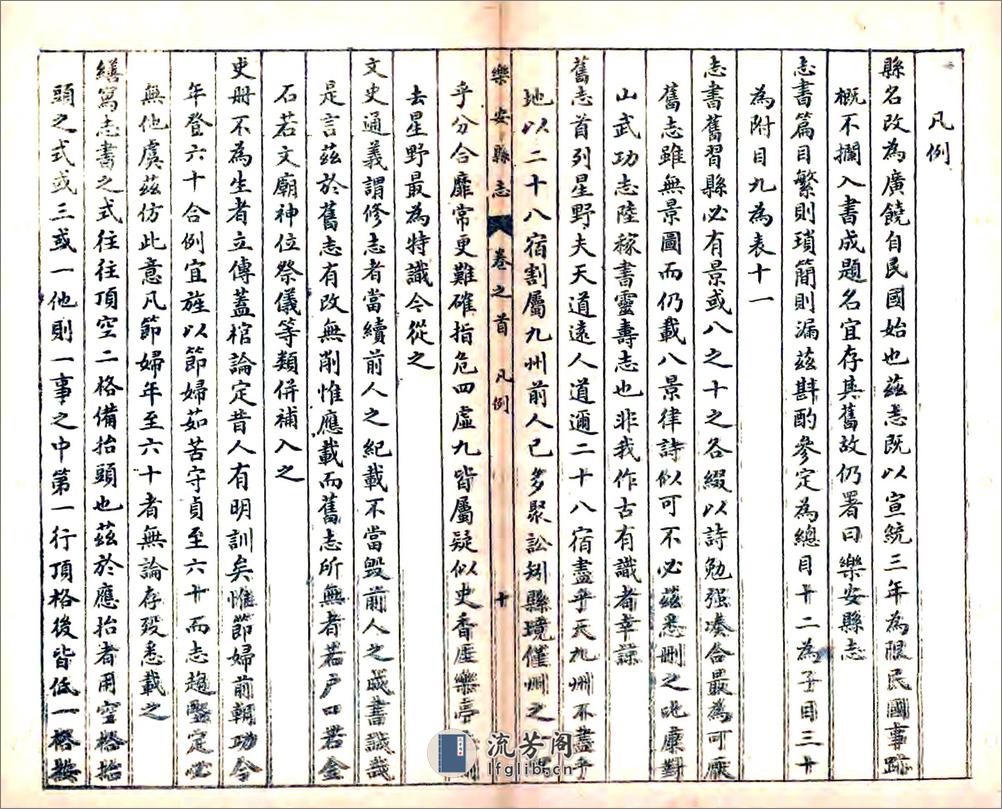 凡例
縣名改為廣饒自民國始也茲志既以宣統三年為限民國事跡
概不攔入書成題名宜存其舊故仍署曰樂安縣志
志書篇目繁則瑣簡則漏茲斟酌參定為總目十二為子目三十
為附目九為表十一
志書舊習縣必有景或八之十之各綴以詩勉强凑合最為可厭
舊志雖無景圖而仍載八景律詩似可不必茲悉删之此康對
山武功志陸稼書靈壽志也非我作古有識者幸諒
舊志首列星野夫天道遠人道邇二十八宿盡乎天九州不盡乎
地以二十八宿割屬九州前人已多聚訟矧縣境僅州之
樂安縣志 卷之首 凡例 十
乎分合靡常更難確指危四虛九皆屬疑似史香厓樂亭志
去星野最為特識今從之
文史通義謂修志者當續前人之紀載不當毁前人之成書誠哉
是言茲於舊志有改無削惟應載而舊志所無者若户口若金
石若文廟神位祭儀等類併補入之
史册不為生者立傳蓋棺論定昔人有明訓矣惟節婦前朝功令
年登六十合例宜旌以節婦茹苦守貞至六十而志趨堅定必
無他虞茲仿此意凡節婦年至六十者無論存殁悉載之
繕寫志書之式往往頂空二格備抬頭也茲於應抬者用空格抬
頭之式或三或一他則一事之中第一行頂格後皆低一格按
流芳阁
lfglib.cn